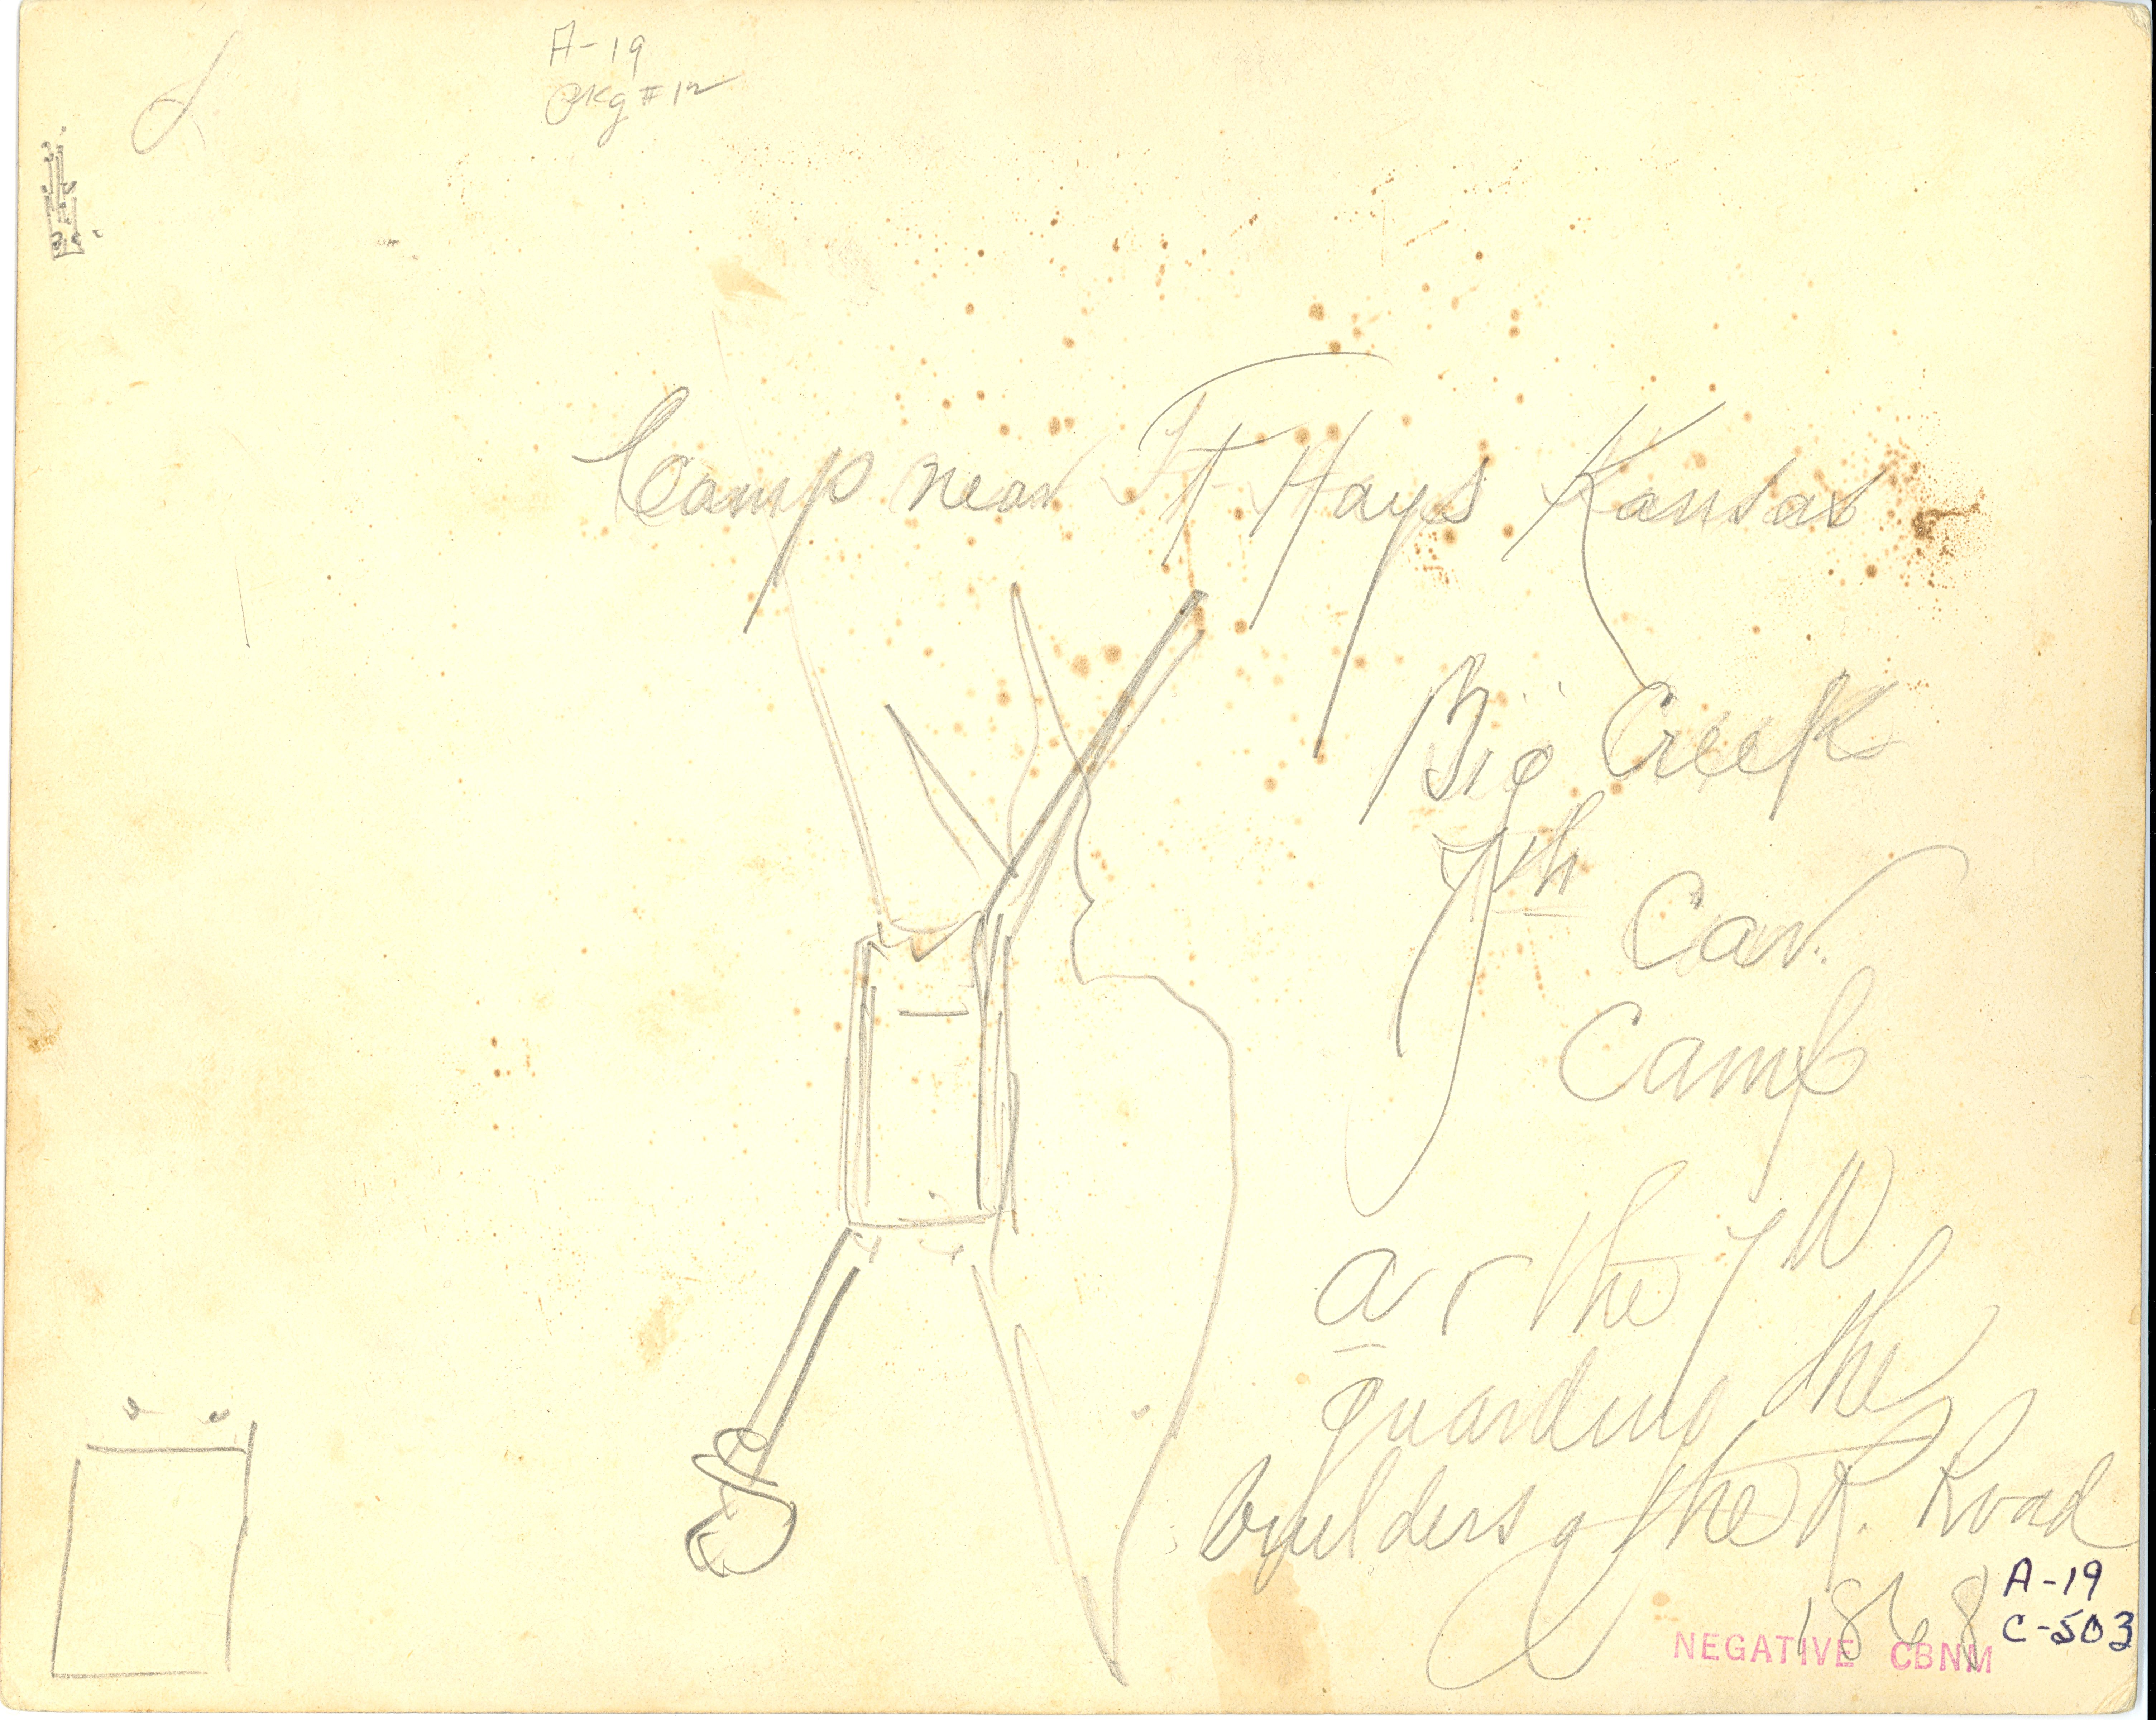 A-19
Pkg #12
Camp near Ft Hays Kansas
Big Creek
7th
Cav.
Camp
the 7
guarding the
builders of the R. Road
1868
A-19
C-503
NEGATIVE CBNM